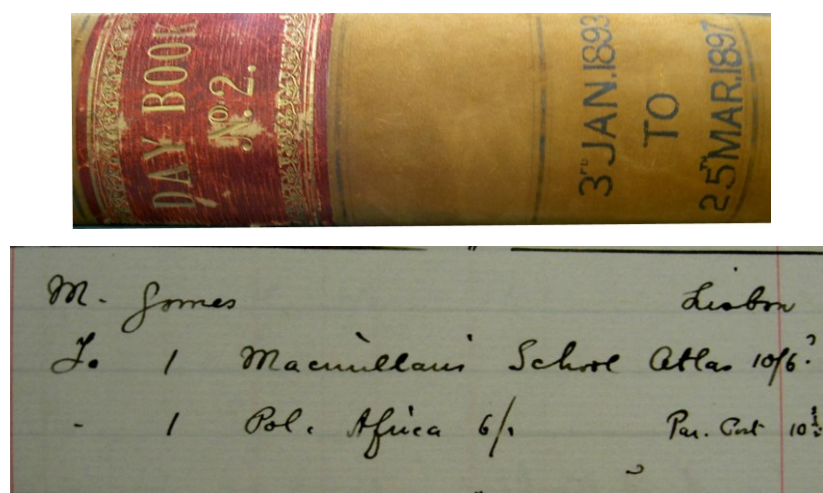 DAY BOOK
No. 2.
3RD JAN. 1893
TO
25TH MAR. 1897
M. Gomes Lisbon
To 1 Macmillan's School Atlas 10/6
- 1 Pol. Africa 6/. Par. Post 10½